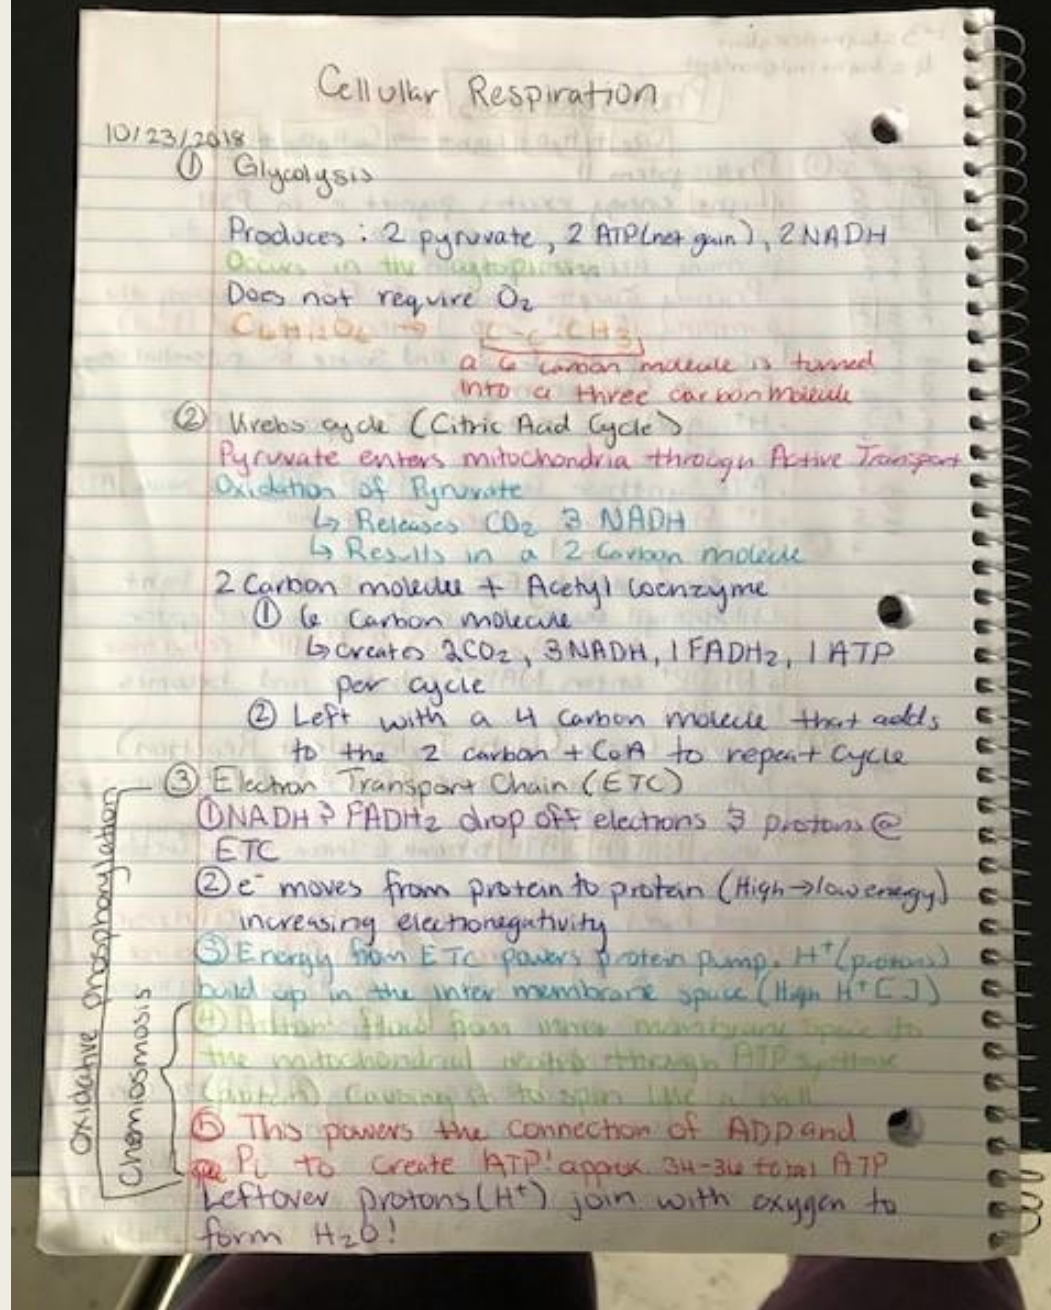 Cellular Respiration
10/23/2018
① Glycolysis
Produces: 2 pyruvate, 2 ATP (net gain), 2 NADH
Occurs in the cytoplasm
Does not require O₂
C₆H₁₂O₆ →
a 6 carbon molecule is turned
into a three carbon molecule
② Krebs cycle (Citric Acid Cycle)
Pyruvate enters mitochondria through Active Transport
Oxidation of Pyruvate
↳ Releases CO₂ & NADH
↳ Results in a 2 Carbon molecule
2 Carbon molecule + Acetyl Coenzyme
① 6 Carbon molecule
↳ creates 2CO₂, 3NADH, 1FADH₂, 1 ATP
per cycle
② Left with a 4 Carbon molecule that adds
to the 2 carbon + CoA to repeat cycle
③ Electron Transport Chain (ETC)
① NADH & FADH₂ drop off electrons & protons @
ETC
② e⁻ moves from protein to protein (High → low energy)
increasing electronegativity
③ Energy from ETC powers protein pump. H⁺ (protons)
build up in the inter membrane space (High H⁺ [ ])
④ from inner membrane space to
the mitochondrial through ATP synthase
(protein) Causing it to spin like a mill
⑤ This powers the connection of ADP and
Pi to create ATP! approx. 34-36 total ATP
Leftover protons (H⁺) join with oxygen to
form H₂O!
Oxidative phosphorylation
Chemiosmosis